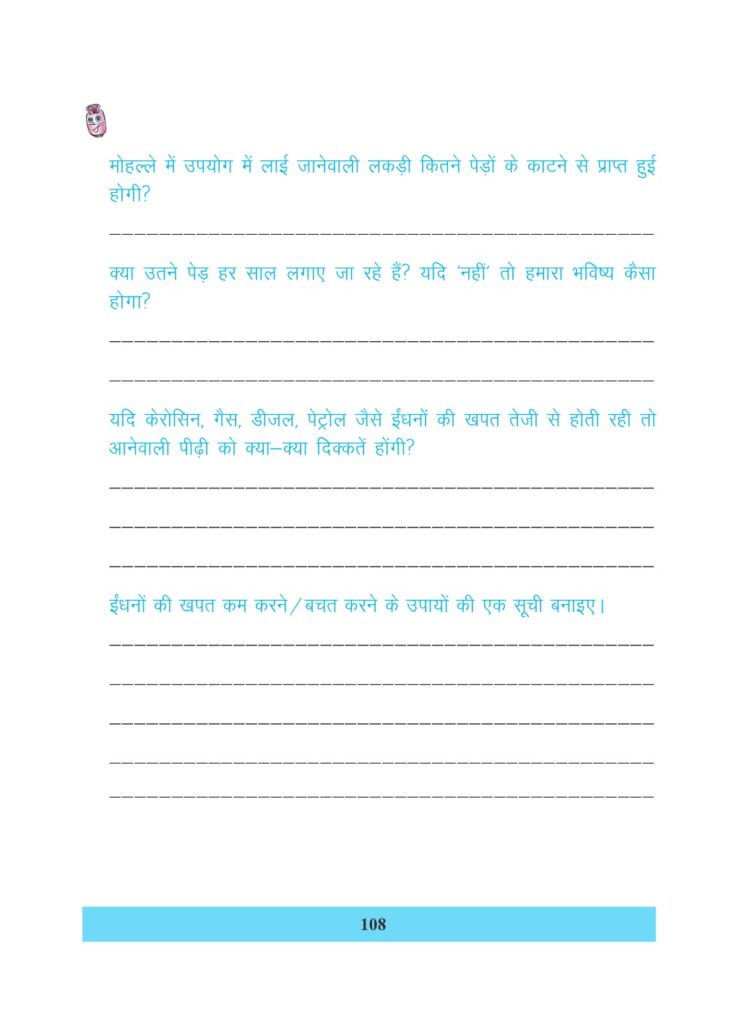 मोहल्ले में उपयोग में लाई जानेवाली लकड़ी कितने पेड़ों के काटने से प्राप्त हुई
होगी?
क्या उतने पेड़ हर साल लगाए जा रहे हैं? यदि 'नहीं' तो हमारा भविष्य कैसा
होगा?
यदि केरोसिन, गैस, डीजल, पेट्रोल जैसे ईंधनों की खपत तेजी से होती रही तो
आनेवाली पीढ़ी को क्या–क्या दिक्कतें होंगी?
ईंधनों की खपत कम करने/बचत करने के उपायों की एक सूची बनाइए।
108